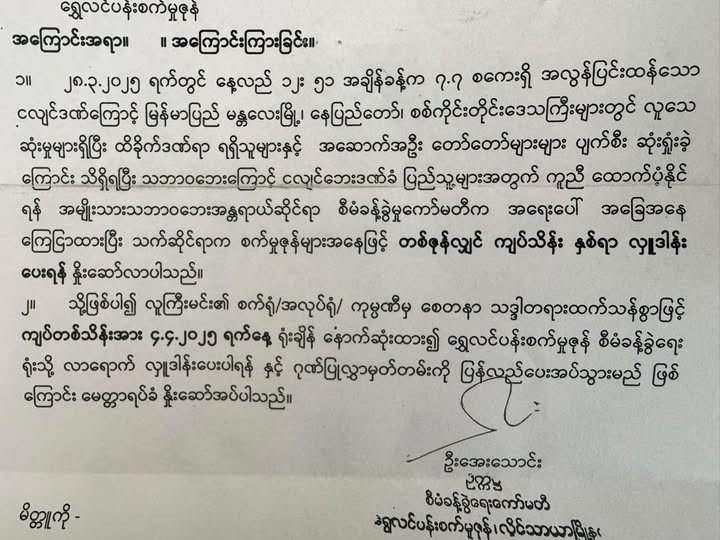 ရွှေလင်ပန်းစက်မှုဇုန်
အကြောင်းအရာ။ ။ အကြောင်းကြားခြင်း။
၁။ ၂၈.၃.၂၀၂၅ ရက်တွင် နေ့လည် ၁၂း ၅၁ အချိန်ခန့်က ၇.၇ စကေးရှိ အလွန်ပြင်းထန်သော
ငလျင်ဒဏ်ကြောင့် မြန်မာပြည် မန္တလေးမြို့၊ နေပြည်တော်၊ စစ်ကိုင်းတိုင်းဒေသကြီးများတွင် လူသေ
ဆုံးမှုများရှိပြီး ထိခိုက်ဒဏ်ရာ ရရှိသူများနှင့် အဆောက်အဦး တော်တော်များများ ပျက်စီး ဆုံးရှုံးခဲ့
ကြောင်း သိရှိရပြီး သဘာဝဘေးကြောင့် ငလျင်ဘေးဒဏ်ခံ ပြည်သူများအတွက် ကူညီ ထောက်ပံ့နိုင်
ရန် အမျိုးသားသဘာဝဘေးအန္တရာယ်ဆိုင်ရာ စီမံခန့်ခွဲမှုကော်မတီက အရေးပေါ် အခြေအနေ
ကြေငြာထားပြီး သက်ဆိုင်ရာက စက်မှုဇုန်များအနေဖြင့် တစ်ဇုန်လျှင် ကျပ်သိန်း နှစ်ရာ လှူဒါန်း
ပေးရန် နှိုးဆော်လာပါသည်။
၂။ သို့ဖြစ်ပါ၍ လူကြီးမင်း၏ စက်ရုံ/အလုပ်ရုံ/ ကုမ္ပဏီမှ စေတနာ သဒ္ဒါတရားထက်သန်စွာဖြင့်
ကျပ်တစ်သိန်းအား ၄.၄.၂၀၂၅ ရက်နေ့ ရုံးချိန် နောက်ဆုံးထား၍ ရွှေလင်ပန်းစက်မှုဇုန် စီမံခန့်ခွဲရေး
ရုံးသို့ လာရောက် လှူဒါန်းပေးပါရန် နှင့် ဂုဏ်ပြုလွှာမှတ်တမ်းကို ပြန်လည်ပေးအပ်သွားမည် ဖြစ်
ကြောင်း မေတ္တာရပ်ခံ နှိုးဆော်အပ်ပါသည်။
ဦးအေးသောင်း
ဥက္ကဋ္ဌ
စီမံခန့်ခွဲရေးကော်မတီ
ရွှေလင်ပန်းစက်မှုဇုန်၊ လှိုင်သာယာမြို့နယ်
မိတ္တူကို -